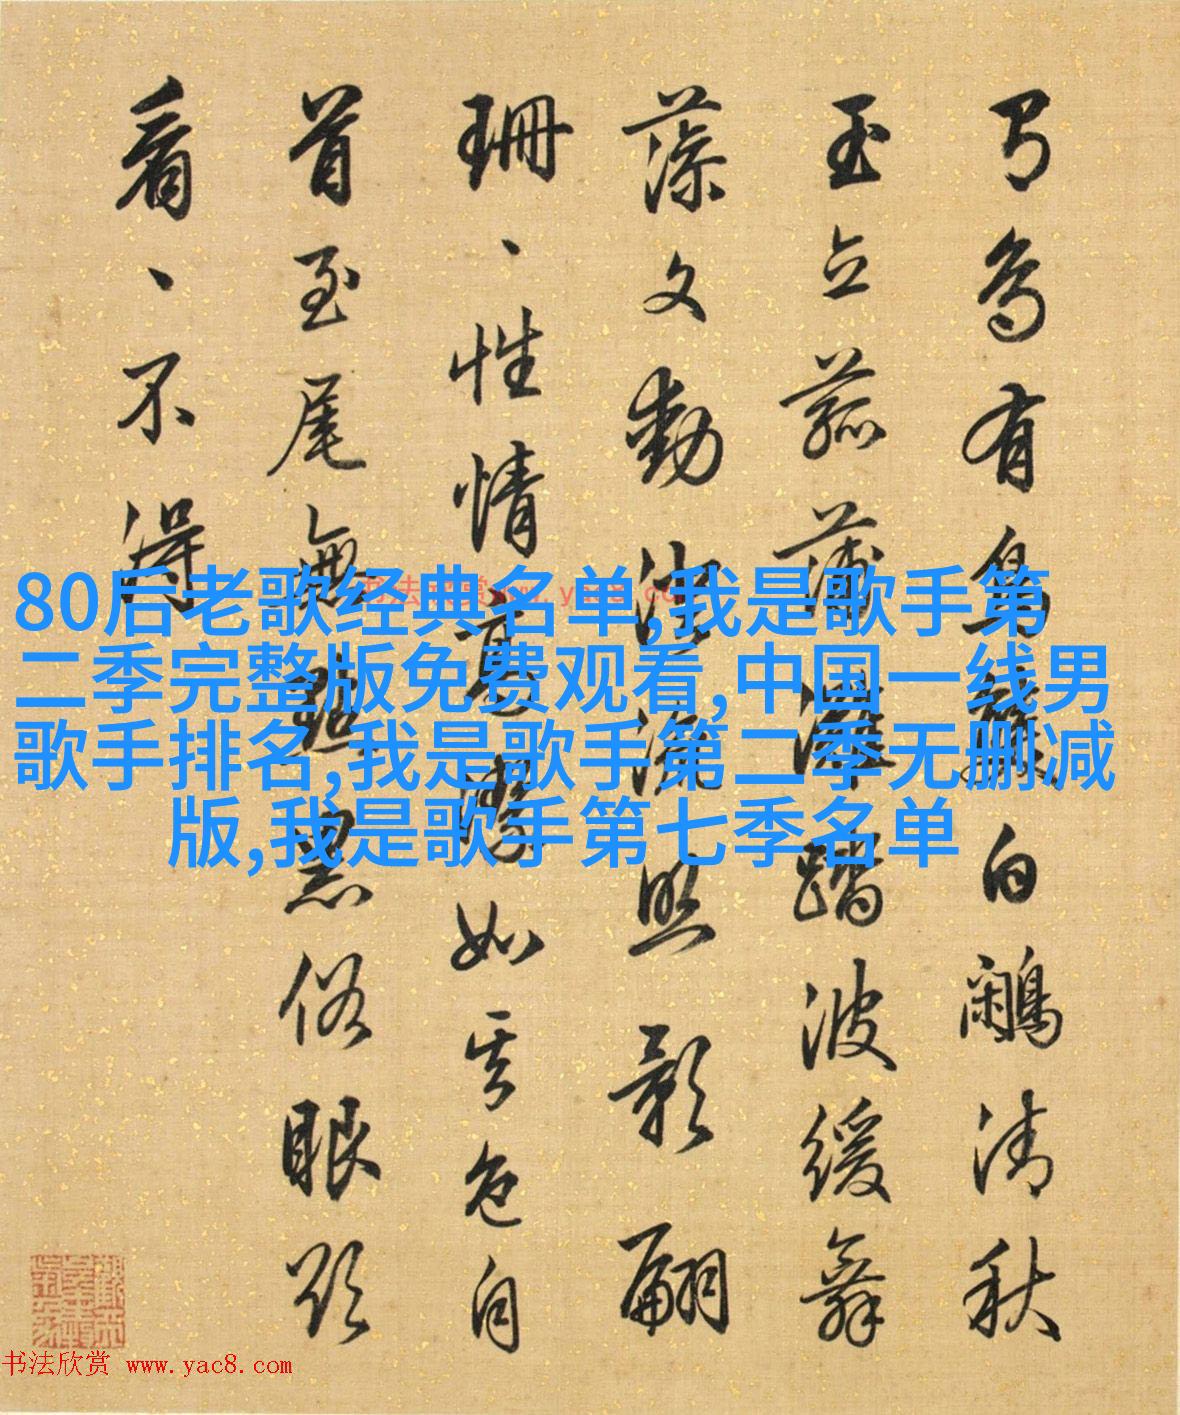 鳥有鳥白鷳清秋
玉立菰蒲灘踏波緩舞
藻文動流照影翩
珊、性情高潔如其色自
首至尾無點黑俗眼欲
看、不得
80后老歌经典名单,我是歌手第
二季完整版免费观看,中国一线男
歌手排名,我是歌手第二季无删减
版,我是歌手第七季名单
书法欣赏 www.yac8.com